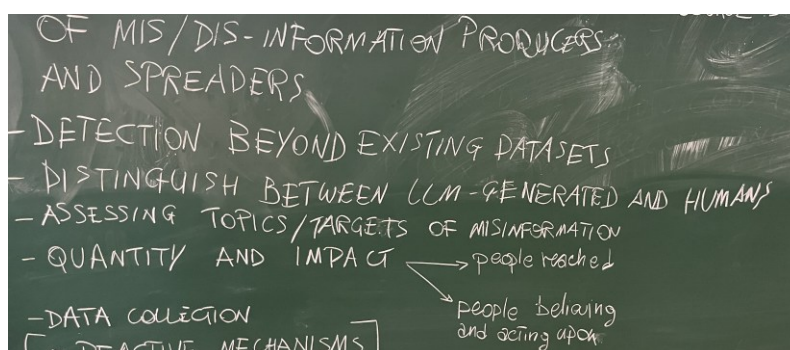 OF MIS/DIS-INFORMATION PRODUCERS
AND SPREADERS
- DETECTION BEYOND EXISTING DATASETS
- DISTINGUISH BETWEEN LLM-GENERATED AND HUMANS
- ASSESSING TOPICS/TARGETS OF MISINFORMATION
- QUANTITY AND IMPACT → people reached
↘ people believing
and acting upon
- DATA COLLECTION
MECHANISMS]